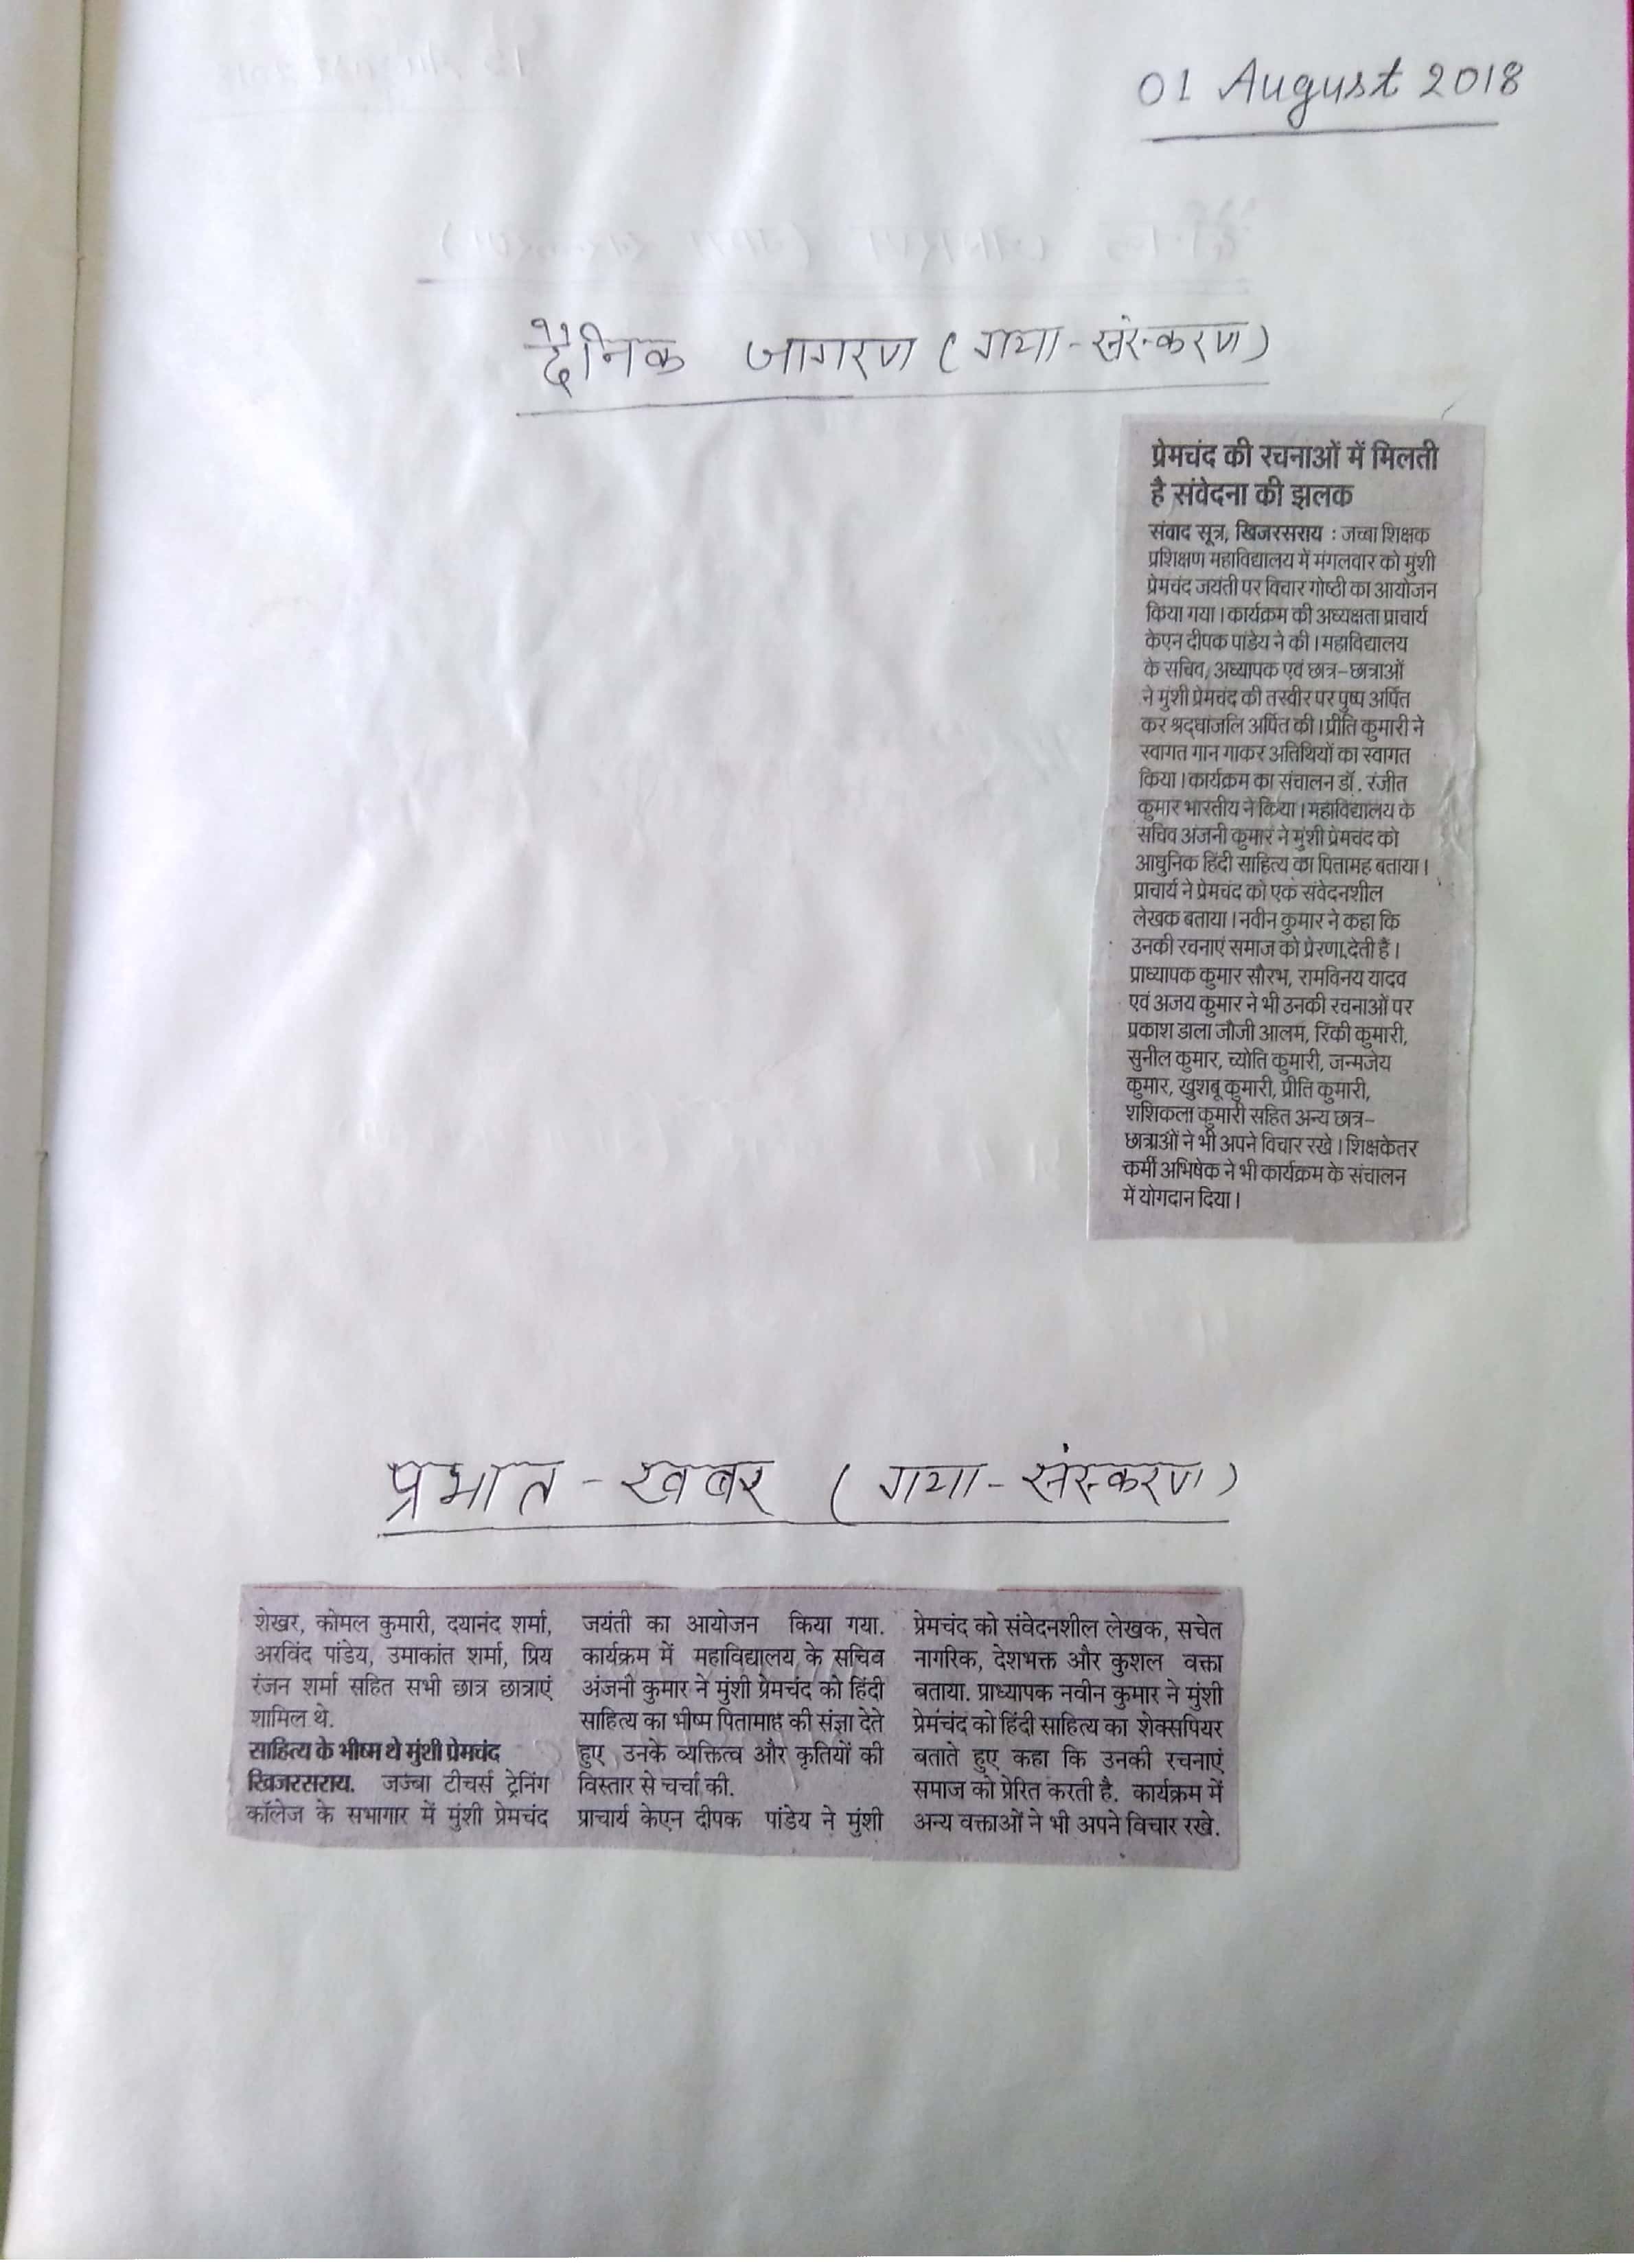 01 August 2018
दैनिक जागरण (गया-संस्करण)
प्रेमचंद की रचनाओं में मिलती
है संवेदना की झलक
संवाद सूत्र, खिजरसराय : जच्बा शिक्षक
प्रशिक्षण महाविद्यालय में मंगलवार को मुंशी
प्रेमचंद जयंती पर विचार गोष्ठी का आयोजन
किया गया। कार्यक्रम की अध्यक्षता प्राचार्य
केएन दीपक पांडेय ने की। महाविद्यालय
के सचिव, अध्यापक एवं छात्र-छात्राओं
ने मुंशी प्रेमचंद की तस्वीर पर पुष्प अर्पित
कर श्रद्धांजलि अर्पित की। प्रीति कुमारी ने
स्वागत गान गाकर अतिथियों का स्वागत
किया। कार्यक्रम का संचालन डॉ. रंजीत
कुमार भारतीय ने किया। महाविद्यालय के
सचिव अंजनी कुमार ने मुंशी प्रेमचंद को
आधुनिक हिंदी साहित्य का पितामह बताया।
प्राचार्य ने प्रेमचंद को एक संवेदनशील
लेखक बताया। नवीन कुमार ने कहा कि
उनकी रचनाएं समाज को प्रेरणा देती हैं।
प्राध्यापक कुमार सौरभ, रामविनय यादव
एवं अजय कुमार ने भी उनकी रचनाओं पर
प्रकाश डाला जौजी आलम, रिंकी कुमारी,
सुनील कुमार, च्योति कुमारी, जन्मजेय
कुमार, खुशबू कुमारी, प्रीति कुमारी,
शशिकला कुमारी सहित अन्य छात्र-
छात्राओं ने भी अपने विचार रखे। शिक्षकेतर
कर्मी अभिषेक ने भी कार्यक्रम के संचालन
में योगदान दिया।
प्रभात-खबर (गया-संस्करण)
शेखर, कोमल कुमारी, दयानंद शर्मा,
अरविंद पांडेय, उमाकांत शर्मा, प्रिय
रंजन शर्मा सहित सभी छात्र छात्राएं
शामिल थे.
साहित्य के भीष्म थे मुंशी प्रेमचंद
खिजरसराय. जज्बा टीचर्स ट्रेनिंग
कॉलेज के सभागार में मुंशी प्रेमचंद
जयंती का आयोजन किया गया.
कार्यक्रम में महाविद्यालय के सचिव
अंजनी कुमार ने मुंशी प्रेमचंद को हिंदी
साहित्य का भीष्म पितामाह की संज्ञा देते
हुए उनके व्यक्तित्व और कृतियों की
विस्तार से चर्चा की.
प्राचार्य केएन दीपक पांडेय ने मुंशी
प्रेमचंद को संवेदनशील लेखक, सचेत
नागरिक, देशभक्त और कुशल वक्ता
बताया. प्राध्यापक नवीन कुमार ने मुंशी
प्रेमचंद को हिंदी साहित्य का शेक्सपियर
बताते हुए कहा कि उनकी रचनाएं
समाज को प्रेरित करती है. कार्यक्रम में
अन्य वक्ताओं ने भी अपने विचार रखे.